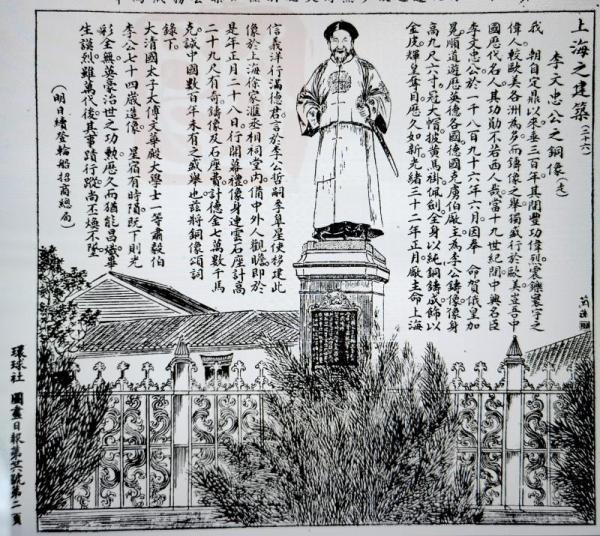 上海之建築（二十六）
李文忠公之銅像
我　朝自定鼎以來垂三百年其間豐功偉烈震鑠寰宇之
偉人較歐美各洲為多而鑄像之舉獨盛行於歐美豈吾中
國歷代名人其功勛不若西人哉當十九世紀間中興名臣
李文忠公於一千八百九十六年六月因奉　命賀俄皇加
冕順道遊歷英德各國德國克虜伯廠主為李公鑄像像身
高九尺六寸冠大帽披黃馬褂佩劍全身以純銅鑄成飾以
金虎輝皇奪目歷久如新光緒三十二年正月廠主命上海
信義洋行滿德君言於李公哲嗣季皋星使移建此
像於上海徐家滙李相祠堂內備中外人觀瞻即於
是年正月二十八日行開幕禮像身連雲石座計高
二十九尺有奇鑄像及石座費計德金七萬數千馬
克誠中國數百年未有之盛舉也茲將銅像頌詞
錄下
大清國太子太傅文華殿大學士一等肅毅伯
李公七十四歲造像　星宿有時隕既下則光
彩全無英豪治世之功勲歷久而猶能昌熾畢
生謨烈雖萬代後其事蹟行蹤尚丕煥不墜
（明日續登輪船招商總局）
環球社　圖畫日報第廿六號第二頁